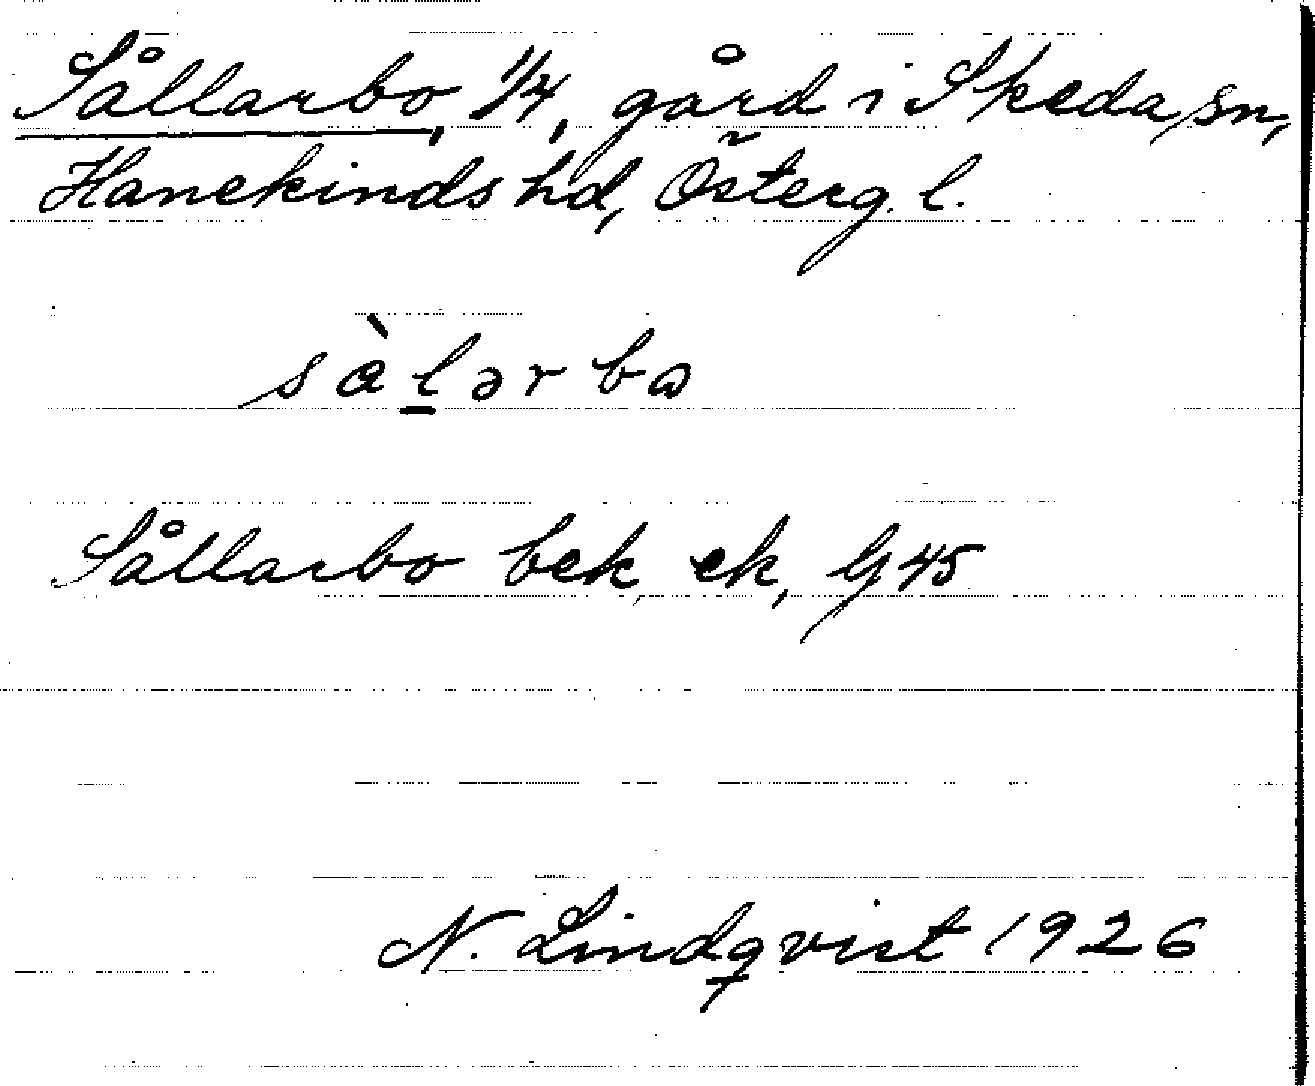 Sållarbo, 1/4, gård i Skeda sn,
Hanekinds hd, Österg. l.
sàl̠ərbɷ
Sållarbo bek. ek, G 45
N. Lindqvist 1926